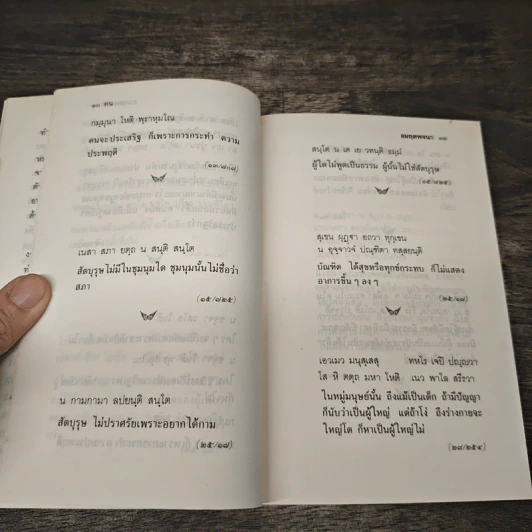 ๑๐ คน
กมฺมุนา โหติ พฺราหฺมโณ
คนจะประเสริฐ ก็เพราะการกระทำ ความ
ประพฤติ
(๑๓/๗๐๗)
เนสา สภา ยตฺถ น สนฺติ สนฺโต
สัตบุรุษไม่มีในชุมนุมใด ชุมนุมนั้นไม่ชื่อว่า
สภา
(๑๕/๗๒๕)
น กามกามา ลปยนฺติ สนฺโต
สัตบุรุษ ไม่ปราศรัยเพราะอยากได้กาม
(๒๕/๑๗)
อมฤตพจนา ๑๑
สนฺโต น เต เย วทนฺติ ธมฺมํ
ผู้ใดไม่พูดเป็นธรรม ผู้นั้นไม่ใช่สัตบุรุษ
(๑๕/๗๒๕)
สุเขน ผุฏฺฐา อถวา ทุกฺเขน
น อุจฺจาวจํ ปณฺฑิตา ทสฺสยนฺติ
บัณฑิต ได้สุขหรือทุกข์กระทบ ก็ไม่แสดง
อาการขึ้น ๆ ลง ๆ
(๒๕/๑๗)
เอวเมว มนุสฺเสสุ ทหโร เจปิ ปญฺญวา
โส หิ ตตฺถ มหา โหติ เนว พาโล สรีรวา
ในหมู่มนุษย์นั้น ถึงแม้เป็นเด็ก ถ้ามีปัญญา
ก็นับว่าเป็นผู้ใหญ่ แต่ถ้าโง่ ถึงร่างกายจะ
ใหญ่โต ก็หาเป็นผู้ใหญ่ไม่
(๒๗/๒๕๔)